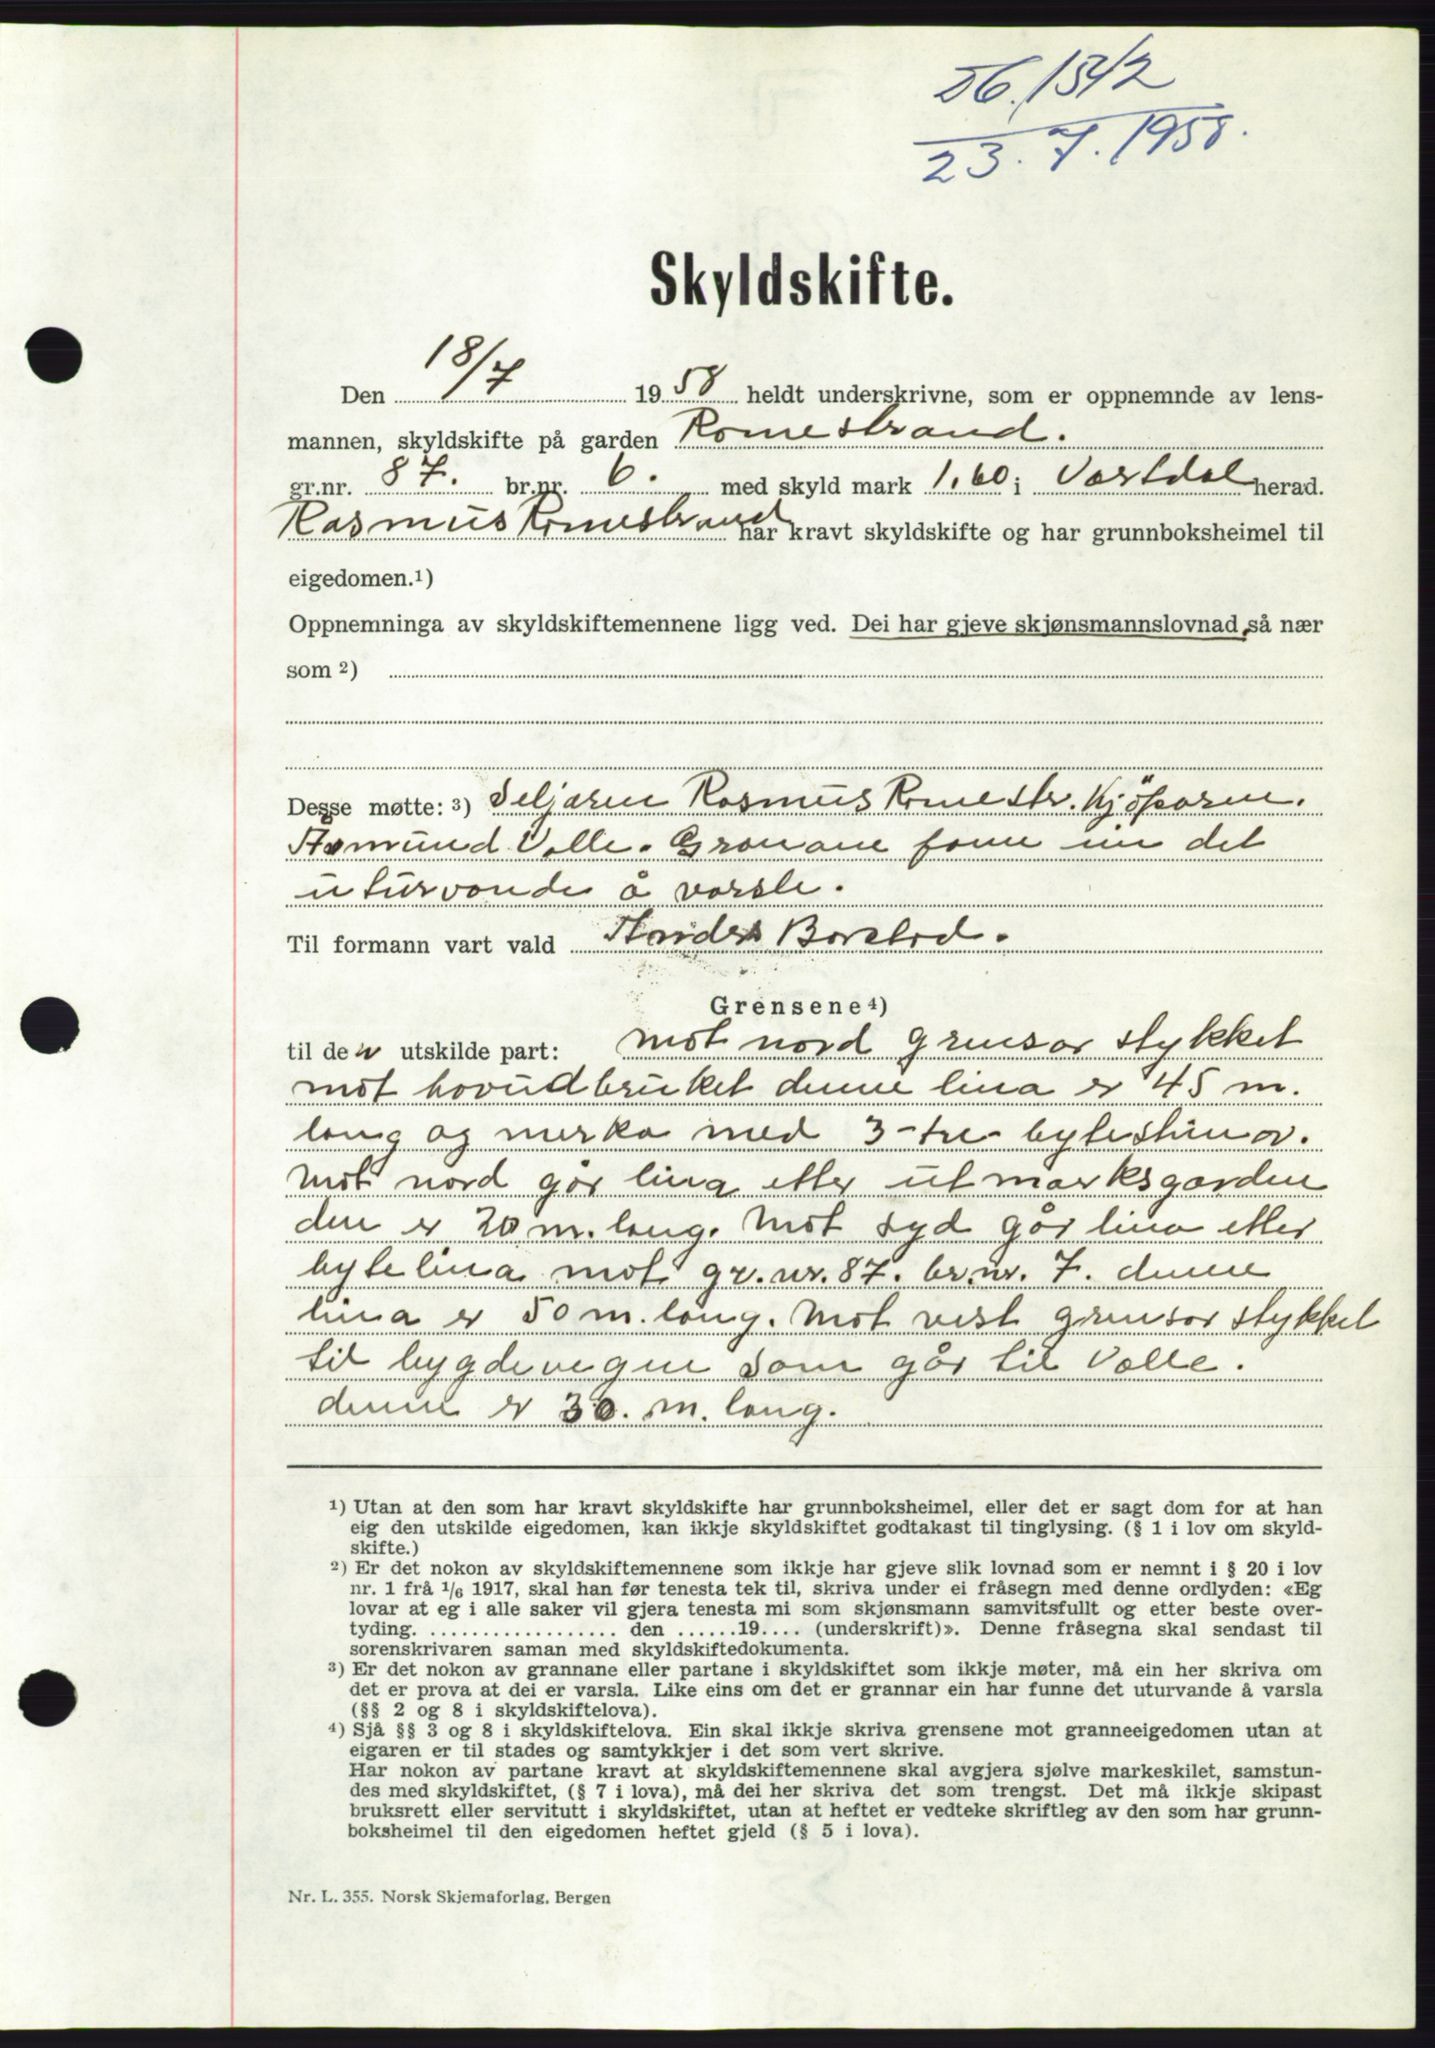 56.1542
23.7.1958.
Skyldskifte.
Den 18/7 1958 heldt underskrivne, som er oppnemnde av lens-
mannen, skyldskifte på garden Romestrand.
gr.nr. 87. br.nr. 6. med skyld mark 1.60 i Vartdal herad.
Rasmus Romestrand har kravt skyldskifte og har grunnboksheimel til
eigedomen.1)
Oppnemninga av skyldskiftemennene ligg ved. Dei har gjeve skjønsmannslovnad, så nær
som 2)
Desse møtte: 3) Seljaren Rasmus Romestr. Kjöparen.
Åsmund Valle. Granane fann ein det
uturvande å varsle.
Til formann vart vald Anders Barstad.
Grensene 4)
til den utskilde part: mot nord grensar stykket
mot hovudbruket denne lina er 45 m.
lang og merka med 3-tre- bytesteinar.
Mot nord går lina etter utmarksgarden
den er 20 m. lang. Mot syd går lina etter
bytelina mot gr.nr. 87. br.nr. 7. denne
lina er 50 m. lang. Mot vest grensar stykket
til bygdevegen som går til Valle.
denne er 30. m. lang.
1) Utan at den som har kravt skyldskifte har grunnboksheimel, eller det er sagt dom for at han
eig den utskilde eigedomen, kan ikkje skyldskiftet godtakast til tinglysing. (§ 1 i lov om skyld-
skifte.)
2) Er det nokon av skyldskiftemennene som ikkje har gjeve slik lovnad som er nemnt i § 20 i lov
nr. 1 frå 1/6 1917, skal han før tenesta tek til, skriva under ei fråsegn med denne ordlyden: «Eg
lovar at eg i alle saker vil gjera tenesta mi som skjønsmann samvitsfullt og etter beste over-
tyding. .................. den ......19.... (underskrift)». Denne fråsegna skal sendast til
sorenskrivaren saman med skyldskiftedokumenta.
3) Er det nokon av grannane eller partane i skyldskiftet som ikkje møter, må ein her skriva om
det er prova at dei er varsla. Like eins om det er grannar ein har funne det uturvande å varsla
(§§ 2 og 8 i skyldskiftelova).
4) Sjå §§ 3 og 8 i skyldskiftelova. Ein skal ikkje skriva grensene mot granneeigedomen utan at
eigaren er til stades og samtykkjer i det som vert skrive.
Har nokon av partane kravt at skyldskiftemennene skal avgjera sjølve markeskilet, samstun-
des med skyldskiftet, (§ 7 i lova), må dei her skriva det som trengst. Det må ikkje skipast
bruksrett eller servitutt i skyldskiftet, utan at heftet er vedteke skriftleg av den som har grunn-
boksheimel til den eigedomen heftet gjeld (§ 5 i lova).
Nr. L. 355. Norsk Skjemaforlag, Bergen